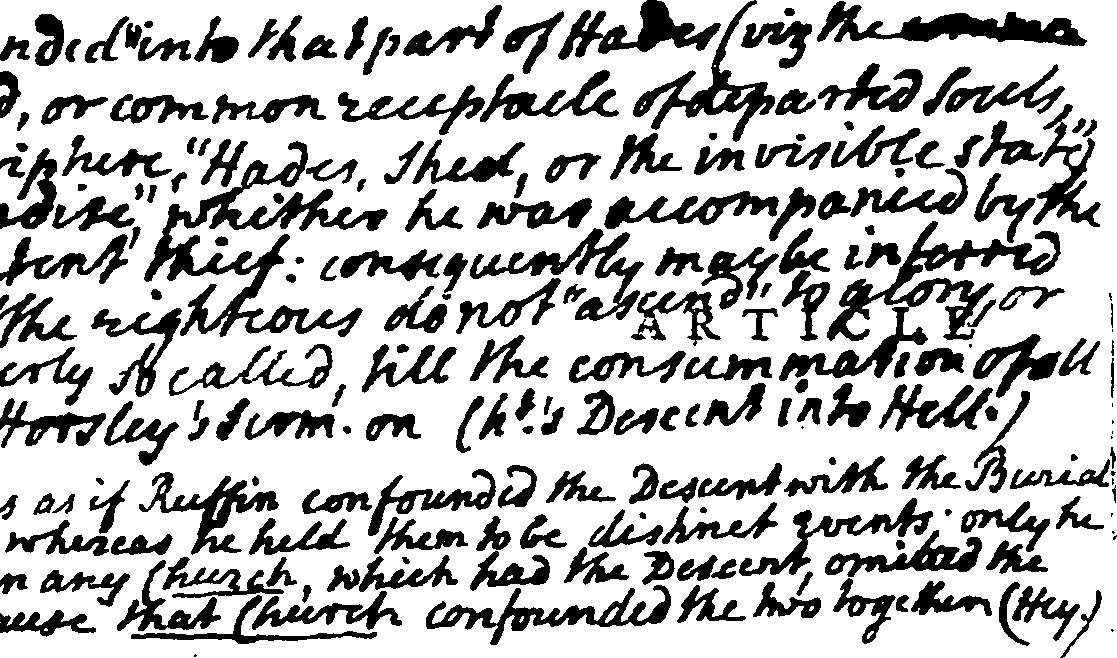 nded" into that part of Hades (viz the
d, or common receptacle of departed Souls,
riphere, "Hades, Sheol, or the invisible state")
adise," whither he was accompanied by the
tent thief: consequently may be inferred
the righteous do not "ascend" to glory, or
ARTICLE
erly so called, till the consummation of all
Horsley's Serm. on Cht.'s Descent into Hell.)
s as if Ruffin confounded the Descent with the Burial
whereas he held them to be distinct events: only he
n any Church, which had the Descent, omitted the
ause that Church confounded the two together (Hey.)